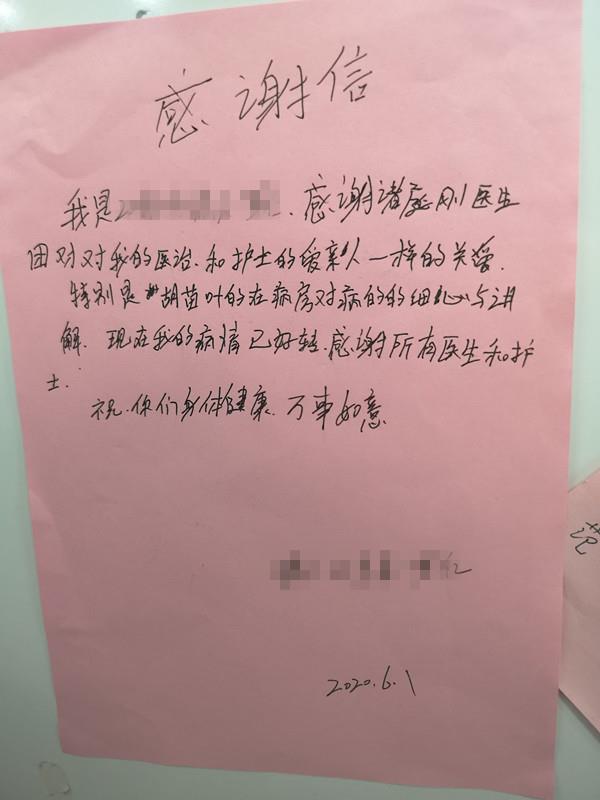 感谢信
我是 感谢诸葛刚医生
团对对我的医治.和护士的爱亲人一样的关爱.
特别是 胡苗叶的在病房对病的的细心与讲
解.现在我的病情已好转.感谢所有医生和护
士.
祝.你们身体健康.万事如意.
2020.6.1
范